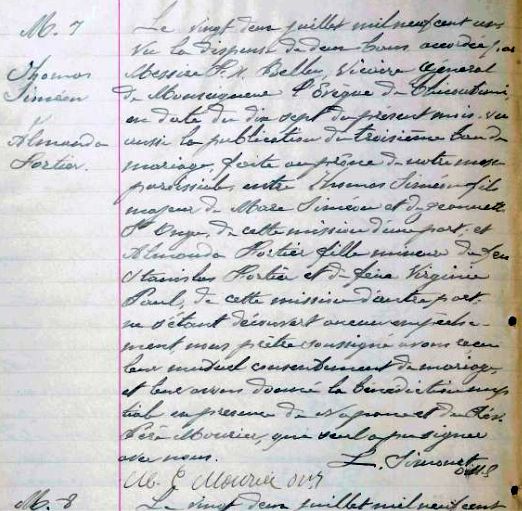 M. 7
Thomas
Siméon
&
Almanda
Fortier.
Le vingt deux juillet mil neuf cent un
vu la dispense de deux bans accordée par
Messire F. X. Belley, Vicaire Général
de Monseigneur l'Evêque de Chicoutimi,
en date du dix sept du présent mois, vu
aussi la publication du troisième ban de
mariage faite au prône de notre messe
paroissiale, entre Thomas Siméon fils
majeur de Marc Siméon et de Jeannette
St Onge, de cette mission d'une part, et
Almanda Fortier fille mineure de feu
Stanislas Fortier et de feue Virginie
Paul, de cette mission d'autre part.
ne s'étant découvert aucun empêche-
ment, nous prêtre soussigné avons reçu
leur mutuel consentement de mariage,
et leur avons donné la bénédiction nup
tiale en présence de et du Rév.
Père Mourier, qui seul a pu signer
avec nous.
L. Simonet
O.M.I.
M. E. Mourier omi
M. 8
Le vingt deux juillet mil neuf cent